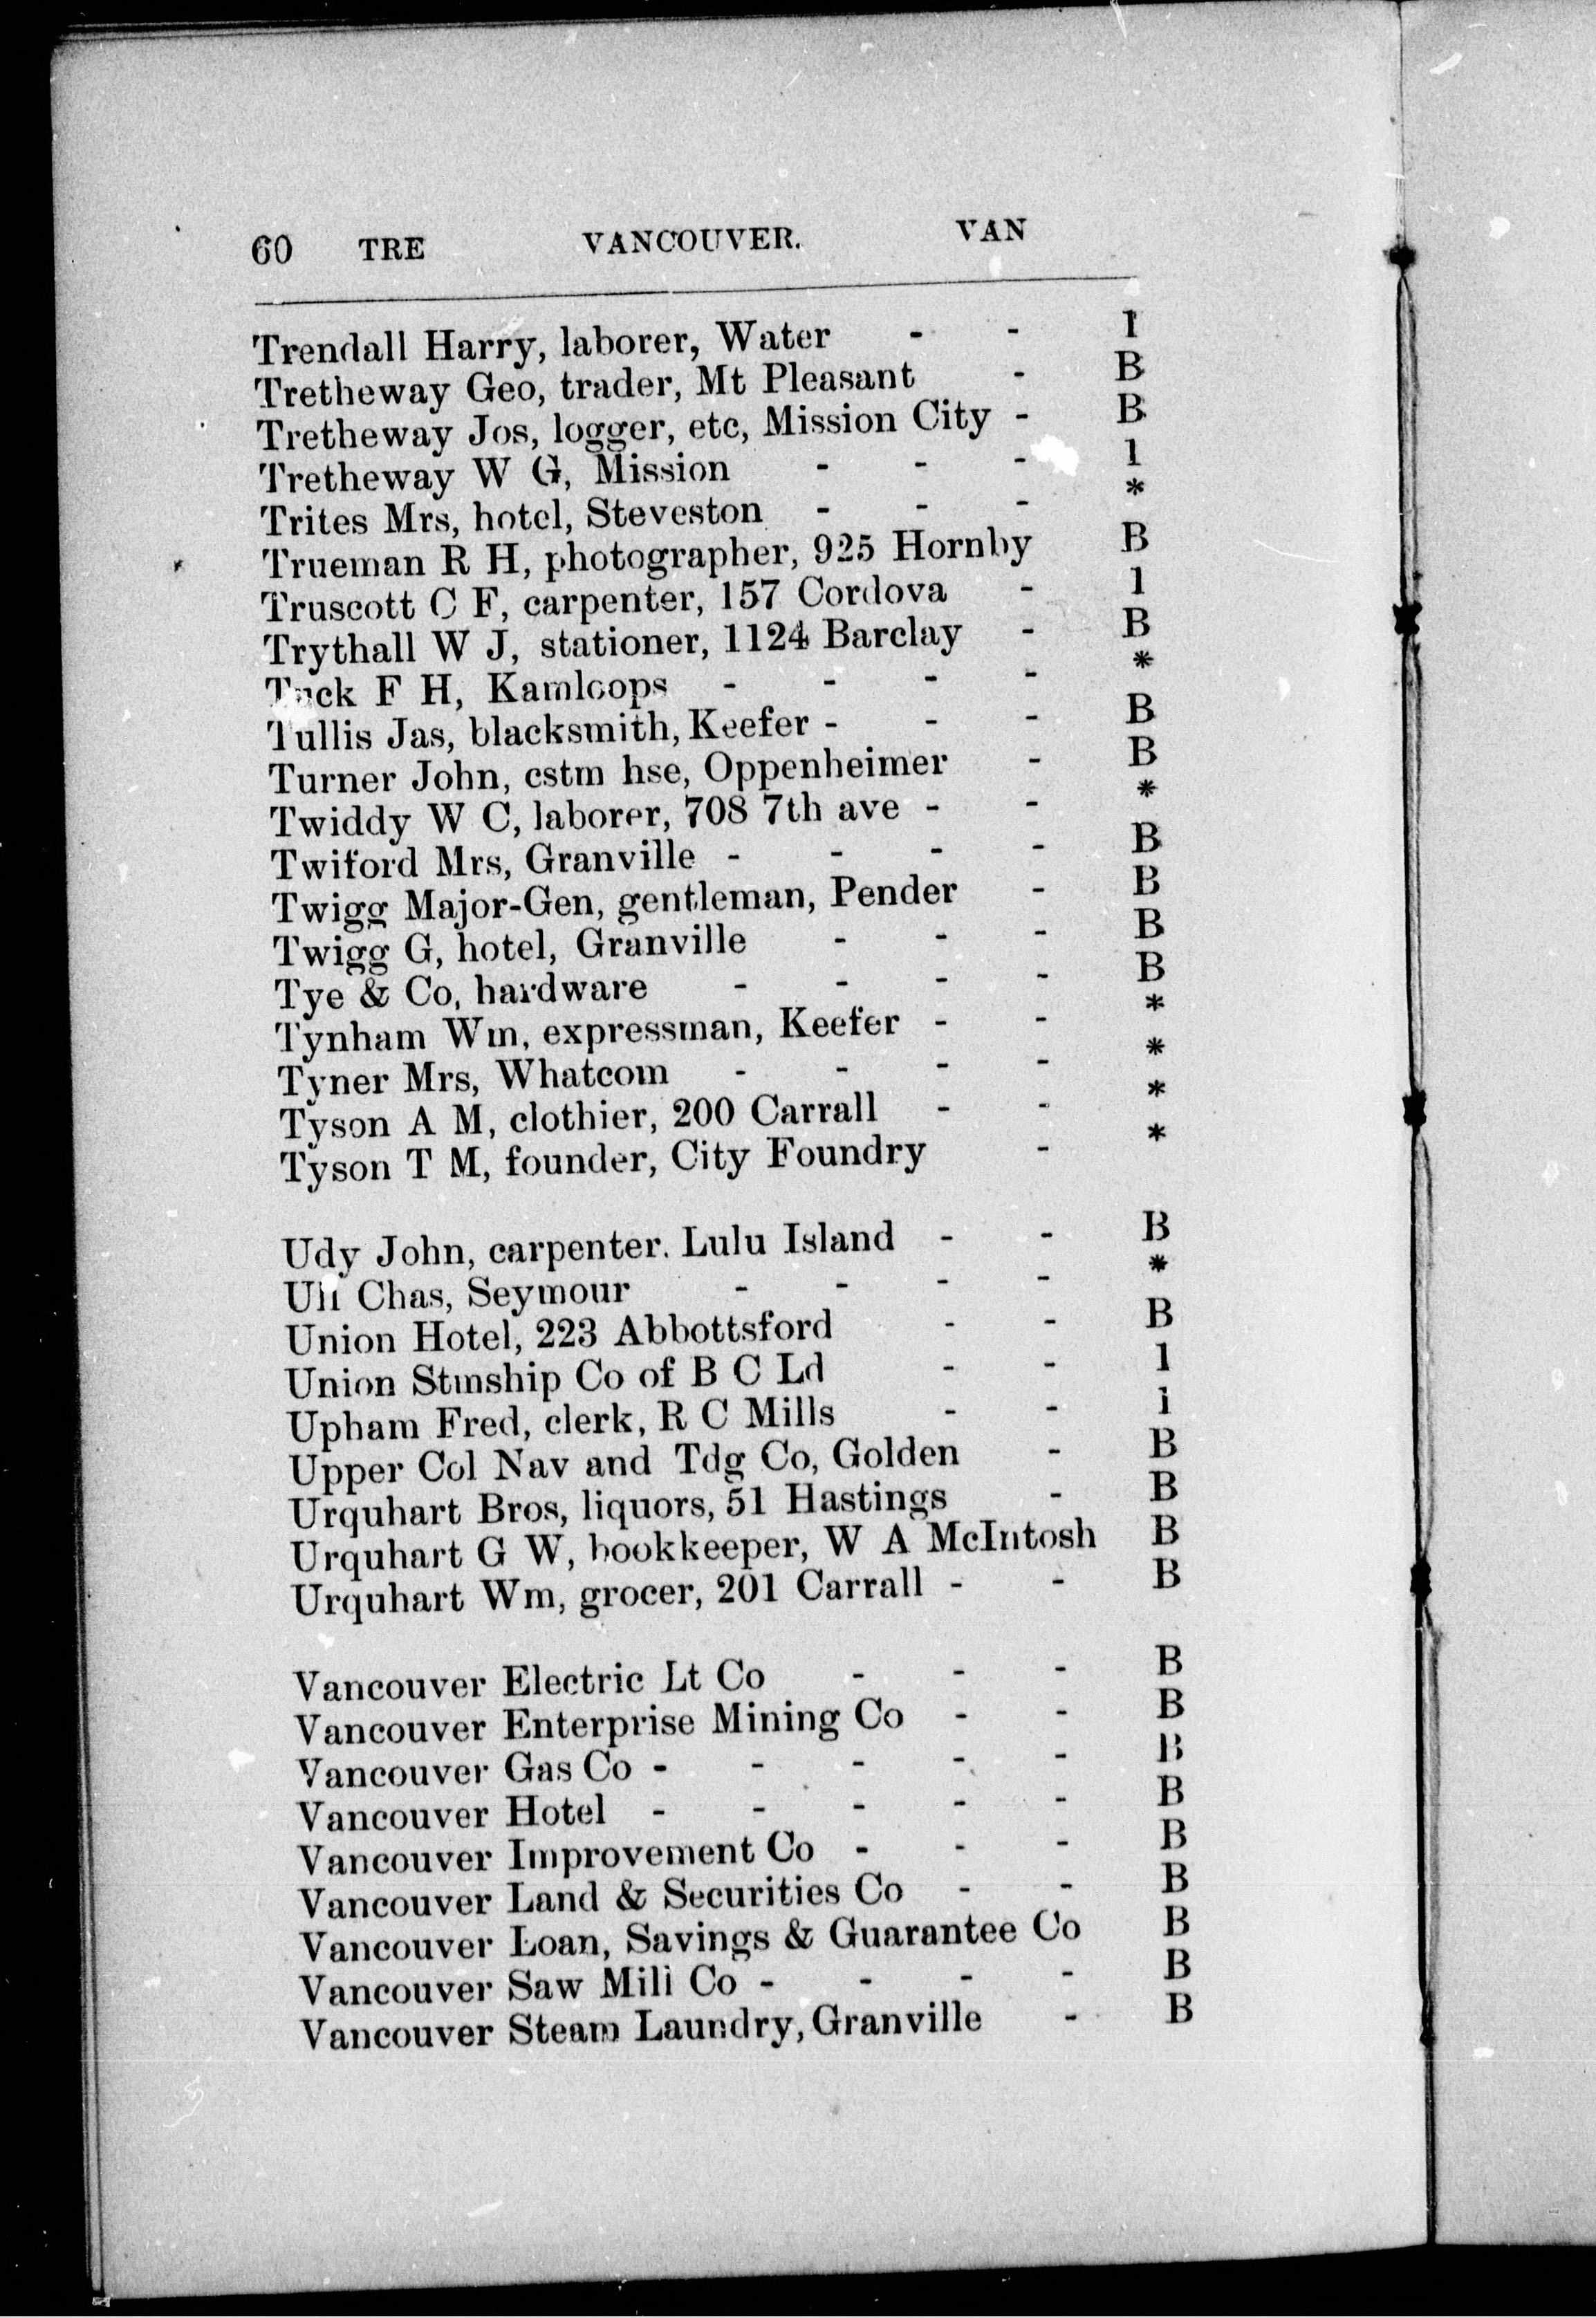 60 TRE VANCOUVER. VAN
Trendall Harry, laborer, Water - - 1
Tretheway Geo, trader, Mt Pleasant - B
Tretheway Jos, logger, etc, Mission City - B
Tretheway W G, Mission - - - 1
Trites Mrs, hotel, Steveston - - - *
Trueman R H, photographer, 925 Hornby B
Truscott C F, carpenter, 157 Cordova - 1
Trythall W J, stationer, 1124 Barclay - B
Tuck F H, Kamloops - - - - *
Tullis Jas, blacksmith, Keefer - - - B
Turner John, cstm hse, Oppenheimer - B
Twiddy W C, laborer, 708 7th ave - - *
Twiford Mrs, Granville - - - - B
Twigg Major-Gen, gentleman, Pender - B
Twigg G, hotel, Granville - - - B
Tye & Co, hardware - - - - B
Tynham Wm, expressman, Keefer - - *
Tyner Mrs, Whatcom - - - - *
Tyson A M, clothier, 200 Carrall - - *
Tyson T M, founder, City Foundry - *
Udy John, carpenter. Lulu Island - - B
Chas, Seymour - - - - *
Union Hotel, 223 Abbottsford - - B
Union Stmship Co of B C Ld - - 1
Upham Fred, clerk, R C Mills - - 1
Upper Col Nav and Tdg Co, Golden - B
Urquhart Bros, liquors, 51 Hastings - B
Urquhart G W, bookkeeper, W A McIntosh B
Urquhart Wm, grocer, 201 Carrall - - B
Vancouver Electric Lt Co - - - B
Vancouver Enterprise Mining Co - - B
Vancouver Gas Co - - - - - B
Vancouver Hotel - - - - - B
Vancouver Improvement Co - - - B
Vancouver Land & Securities Co - - B
Vancouver Loan, Savings & Guarantee Co B
Vancouver Saw Mill Co - - - - B
Vancouver Steam Laundry, Granville - B